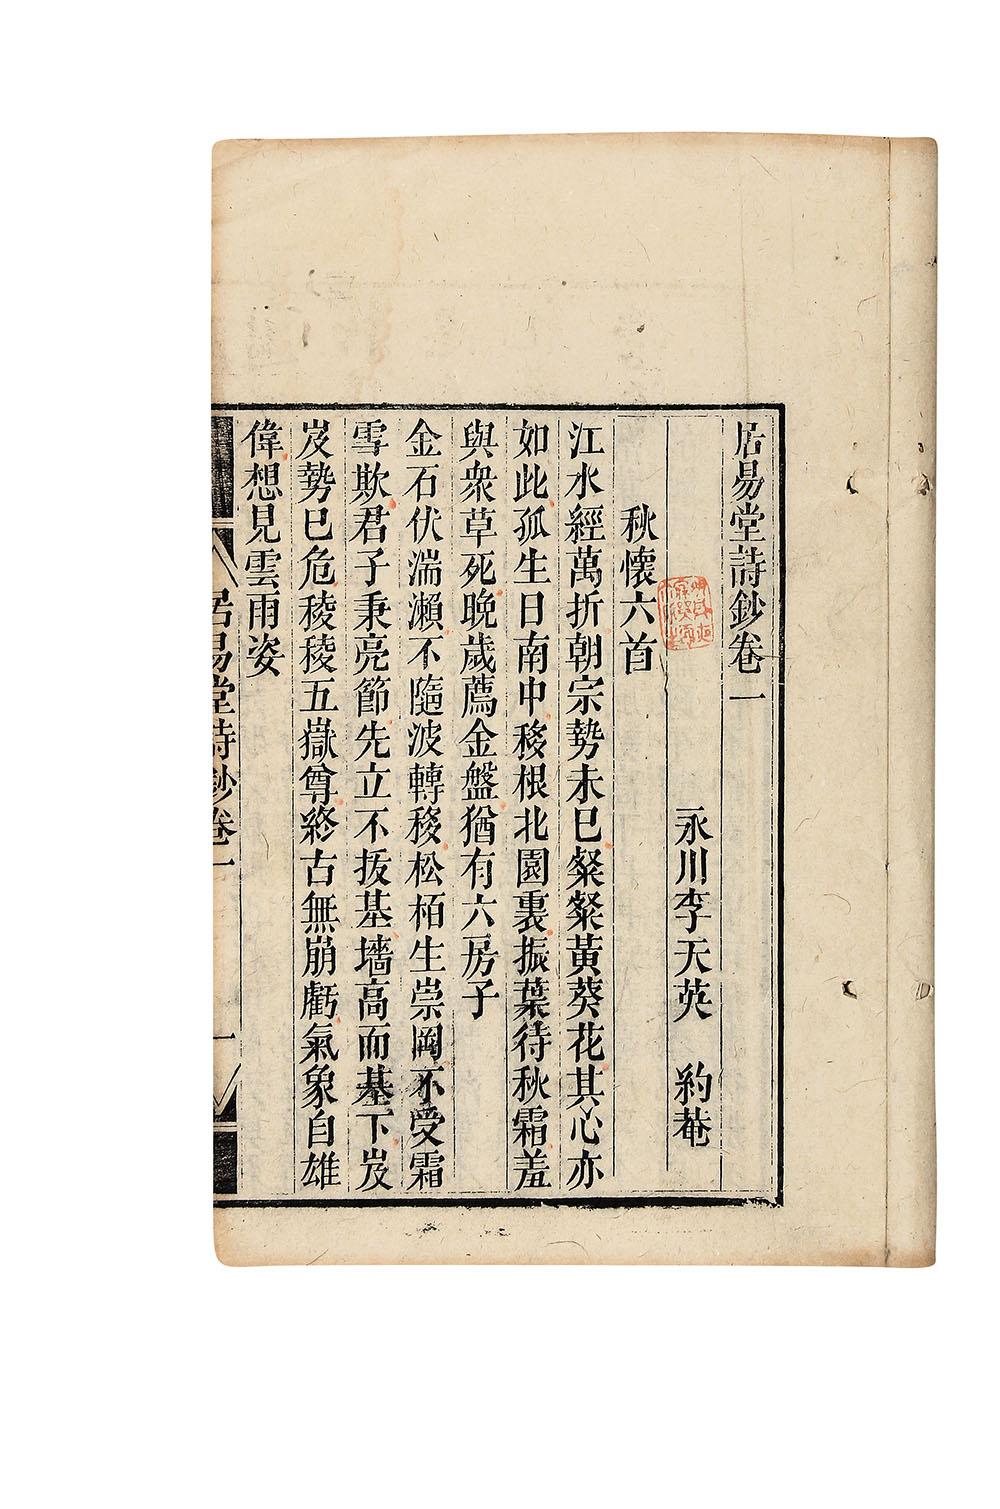 居易堂詩鈔卷一
永川李天英 約菴
秋懷六首
江水經萬折朝宗勢未已粲粲黃葵花其心亦
如此孤生日南中移根北園裏振葉待秋霜羞
與衆草死晚歲薦金盤猶有六房子
金石伏湍瀨不隨波轉移松栢生崇岡不受霜
雪欺君子秉亮節先立不拔基墻高而基下岌
岌勢已危稜稜五嶽尊終古無崩虧氣象自雄
偉想見雲雨姿
居易堂詩鈔卷一 一